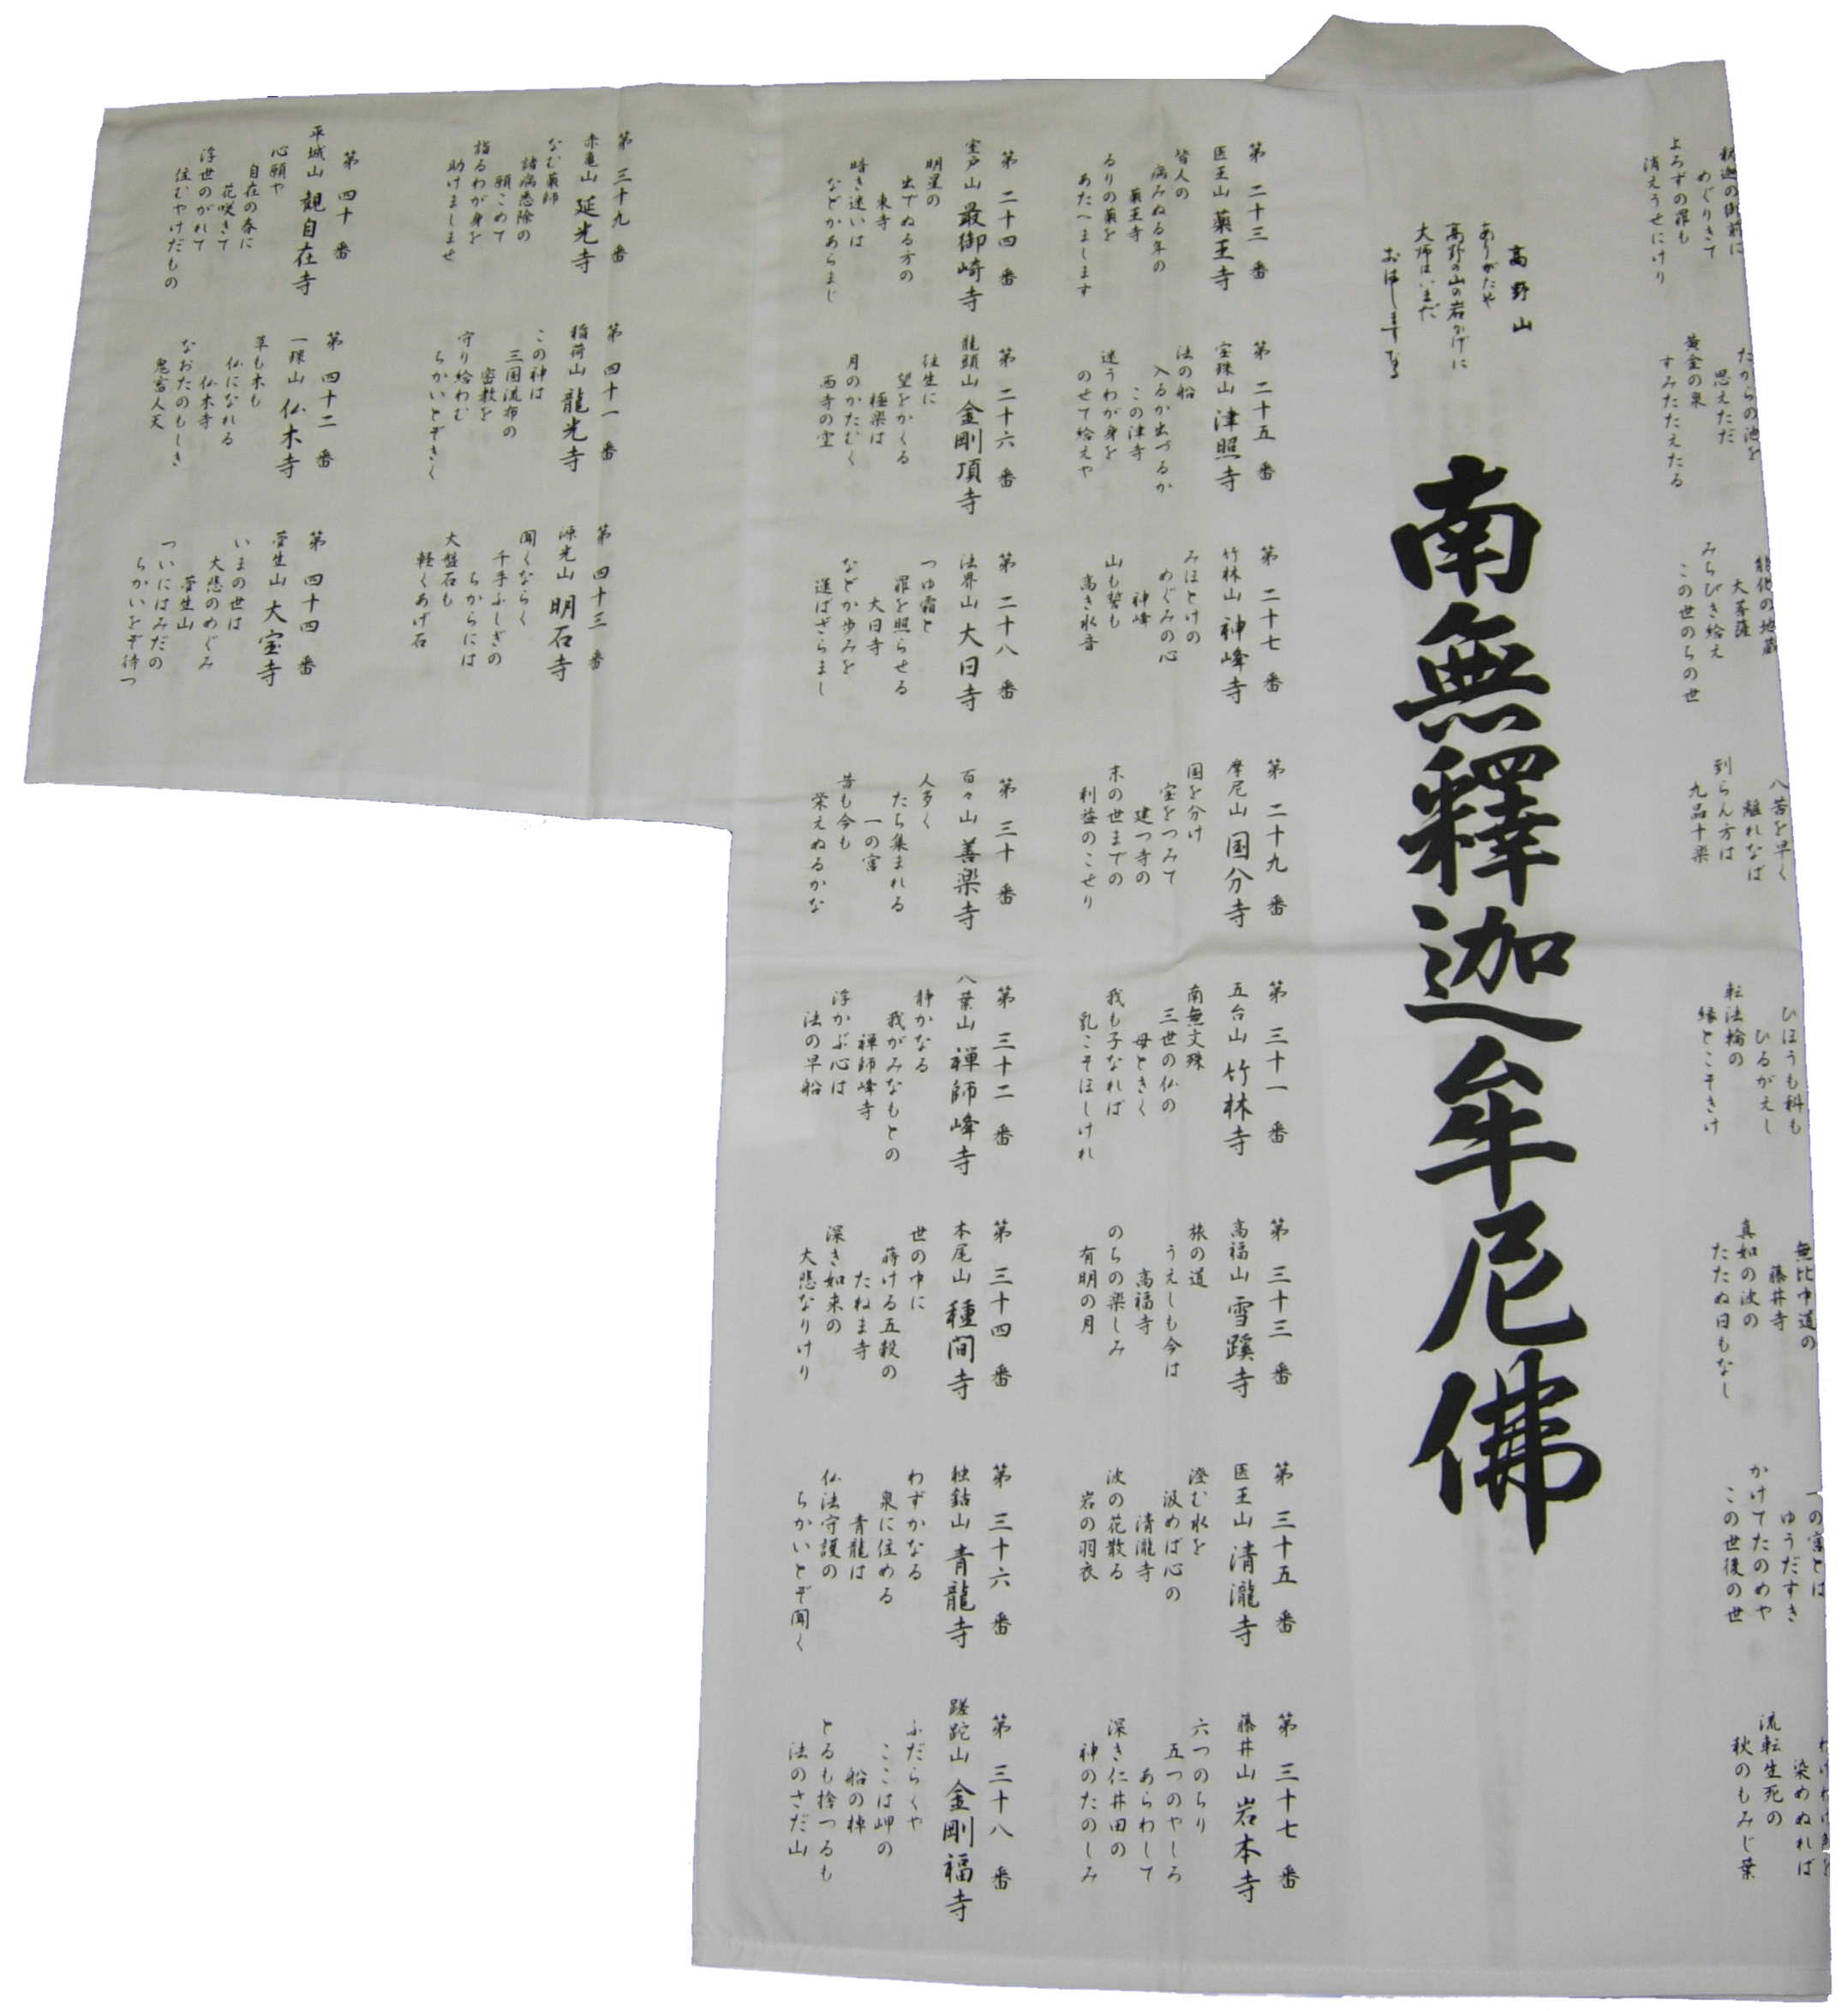 めぐりきて
よろずの罪も
消えうせにけり
たからの池を
思えただ
黄金の泉
すみたたえたる
能化の地蔵
大菩薩
みちびき給え
この世のちの世
八苦を早く
離れなば
到らん方は
九品十楽
ひほうも科も
ひるがえし
転法輪の
縁とこそきけ
無比中道の
藤井寺
真如の波の
たたぬ日もなし
一の宮とは
ゆうだすき
かけてたのめや
この世後の世
染めぬれば
流転生死の
秋のもみじ葉
高野山
ありがたや
高野の山の岩かげに
大師はいまだ
おはしますなる
南無釋迦牟尼佛
第二十三番
医王山 薬王寺
皆人の
病みぬる年の
薬王寺
るりの薬を
あたへまします
第二十五番
宝珠山 津照寺
法の船
入るか出づるか
この津寺
迷うわが身を
のせて給えや
第二十七番
竹林山 神峰寺
みほとけの
めぐみの心
神峰
山も誓も
高き水音
第二十九番
摩尼山 国分寺
国を分け
宝をつみて
建つ寺の
末の世までの
利益のこせり
第三十一番
五台山 竹林寺
南無文殊
三世の仏の
母ときく
我も子なれば
乳こそほしけれ
第三十三番
高福山 雪蹊寺
旅の道
うえしも今は
高福寺
のちの楽しみ
有明の月
第三十五番
医王山 清瀧寺
澄む水を
汲めば心の
清瀧寺
波の花散る
岩の羽衣
第三十七番
藤井山 岩本寺
六つのちり
五つのやしろ
あらわして
深き仁井田の
神のたのしみ
第二十四番
室戸山 最御崎寺
明星の
出でぬる方の
東寺
暗き迷いは
などかあらまじ
第二十六番
龍頭山 金剛頂寺
往生に
望をかくる
極楽は
月のかたむく
西寺の空
第二十八番
法界山 大日寺
つゆ霜と
罪を照らせる
大日寺
などか歩みを
運ばざらまし
第三十番
百々山 善楽寺
人多く
たち集まれる
一の宮
昔も今も
栄えぬるかな
第三十二番
八葉山 禅師峰寺
静かなる
我がみなもとの
禅師峰寺
浮かぶ心は
法の早船
第三十四番
本尾山 種間寺
世の中に
蒔ける五穀の
たねま寺
深き如来の
大悲なりけり
第三十六番
独鈷山 青龍寺
わずかなる
泉に住める
青龍は
仏法守護の
ちかいとぞ聞く
第三十八番
蹉跎山 金剛福寺
ふだらくや
ここは岬の
船の棹
とるも捨つるも
法のさだ山
第三十九番
赤亀山 延光寺
なむ薬師
諸病悉除の
願こめて
詣るわが身を
助けましませ
第四十一番
稲荷山 龍光寺
この神は
三国流布の
密教を
守り給わむ
ちかいとぞきく
第四十三番
源光山 明石寺
聞くならく
千手ふしぎの
ちからには
大盤石も
軽くあげ石
第四十番
平城山 観自在寺
心願や
自在の春に
花咲きて
浮世のがれて
住むやけだもの
第四十二番
一理山 仏木寺
草も木も
仏になれる
仏木寺
なおたのもしき
鬼畜人天
第四十四番
菅生山 大宝寺
いまの世は
大悲のめぐみ
菅生山
ついにはみだの
ちかいをぞ待つ